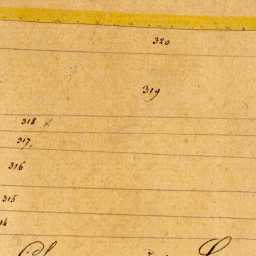 320
319
318
317
316
315